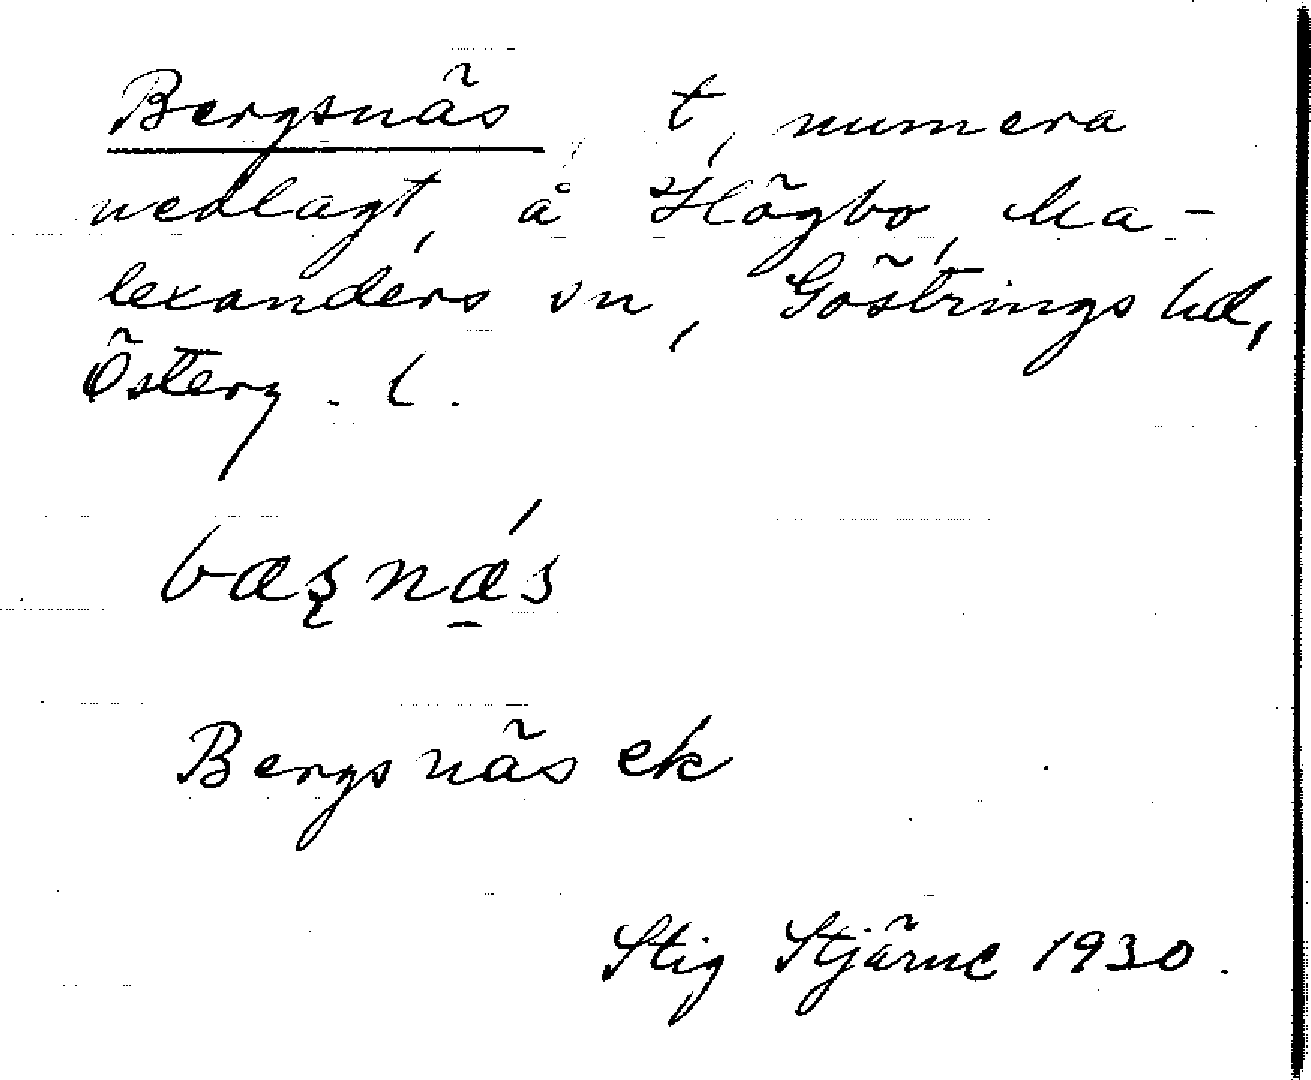 Bergsnäs, t, numera
nedlagt, å Högbo, Ma-
lexanders sn, Göstrings hd,
Österg. l.
bæʂnǽs
Bergsnäs ek
Stig Stjärne 1930.